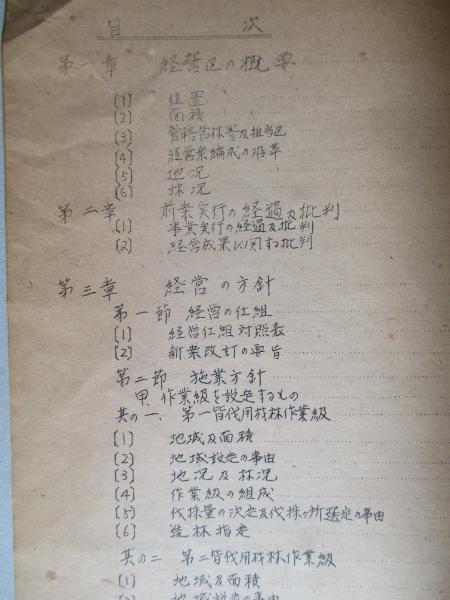 目次
第一章 経営区の概要
[1] 位置
[2] 面積
[3] 管轄営林署及担当区
[4] 経営案編成の沿革
[5] 地況
[6] 林況
第二章 前案実行の経過及批判
[1] 事業実行の経過及批判
[2] 経営成果に関する批判
第三章 経営の方針
第一節 経営の仕組
[1] 経営仕組対照表
[2] 新案改訂の要旨
第二節 施業方針
甲、作業級を設定するもの
其の一、第一皆伐用材林作業級
[1] 地域及面積
[2] 地域設定の事由
[3] 地況及林況
[4] 作業級の組成
[5] 伐採量の決定及伐採ヶ所選定の事由
[6] 造林指定
其の二 第二皆伐用材林作業級
[1] 地域及面積
地域設定の事由